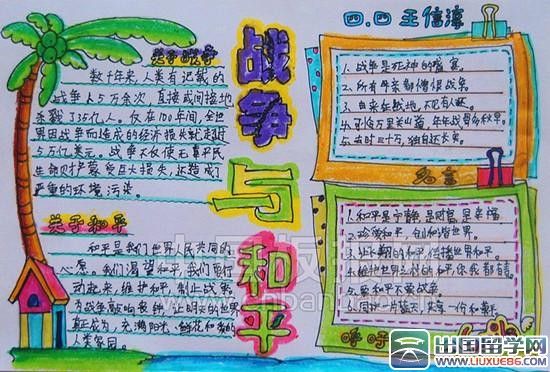 关于战争
数千年来，人类有记载的
战争人5万余次，直接或间接地
杀戮了35亿人。仅在100年间，全世
界因战争而造成的经济损失就超过
5万亿美元。战争不仅使无辜平民
生命财产蒙受巨大损失，还造成了
严重的环境污染。
关于和平
和平是我们世界人民共同的
心愿。我们渴望和平，我们要行
动起来，维护和平，制止战争，
为战争敲响丧钟，让明天的世界
真正成为，充满阳光、鲜花和爱的
人类家园。
战争
与
和平
四.四 王信淳
1.战争是死神的盛宴
2.所有母亲都憎恨战争。
3.自来征战地，不见有人还。
4.可怜万里关山道，年年战骨多秋草。
5.去时三十万，独自还长安。
名言
1.和平是宁静 是财富 是幸福
2.珍爱和平，创和谐世界。
3.让飞翔的和平，传播世界和平。
4.维护世界之村的和平，你我都有责。
5.要和平不要战争。
6.同护一片蓝天，共享一份和平
呼吁
出国留学网
www.liuxue86.com